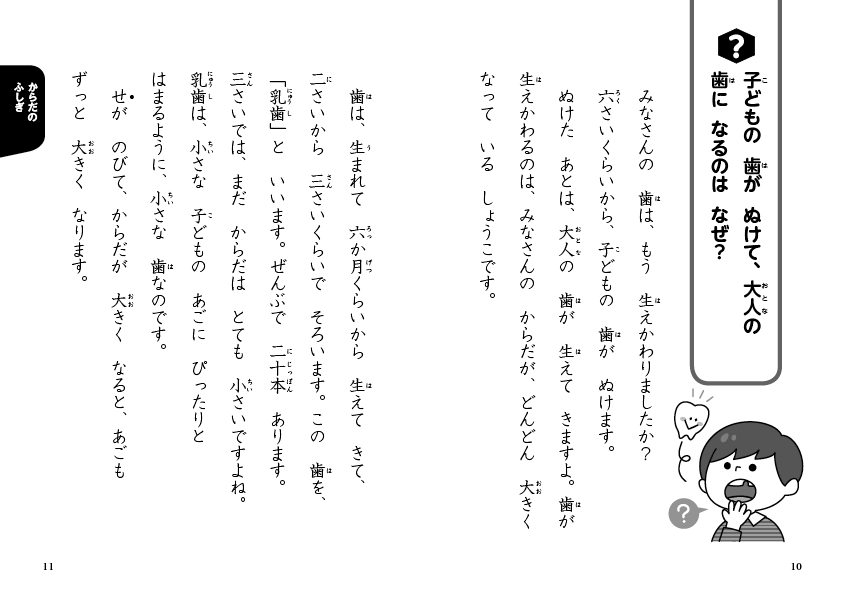 ?
子どもの 歯が ぬけて、大人の
歯に なるのは なぜ?
みなさんの 歯は、もう 生えかわりましたか?
六さいくらいから、子どもの 歯が ぬけます。
ぬけた あとは、大人の 歯が 生えて きますよ。歯が
生えかわるのは、みなさんの からだが、どんどん 大きく
なって いる しょうこです。
?
10
歯は、生まれて 六か月くらいから 生えて きて、
二さいから 三さいくらいで そろいます。この 歯を、
「乳歯」と いいます。ぜんぶで 二十本 あります。
三さいでは、まだ からだは とても 小さいですよね。
乳歯は、小さな 子どもの あごに ぴったりと
はまるように、小さな 歯なのです。
せが のびて、からだが 大きく なると、あごも
ずっと 大きく なります。
からだの
ふしぎ
11